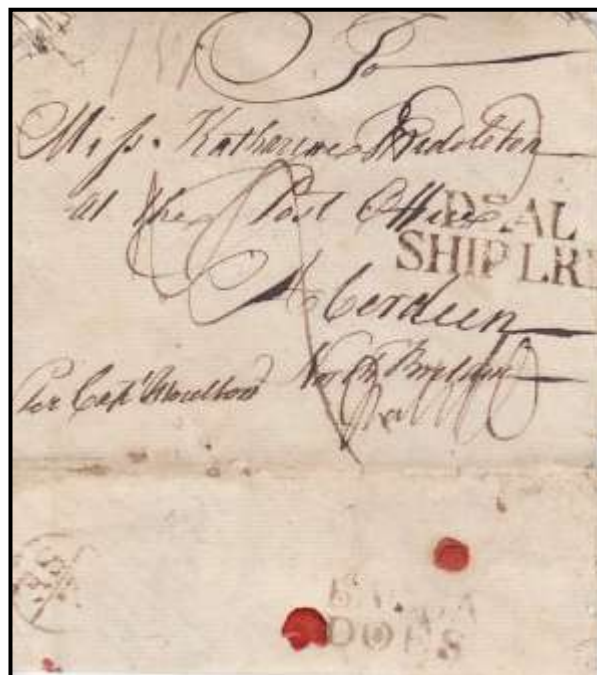 To
Miss. Katharine Middleton
at the Post Office
DEAL
SHIP LRE
Aberdeen
North Britain
Per Capt
BARBA
DOES